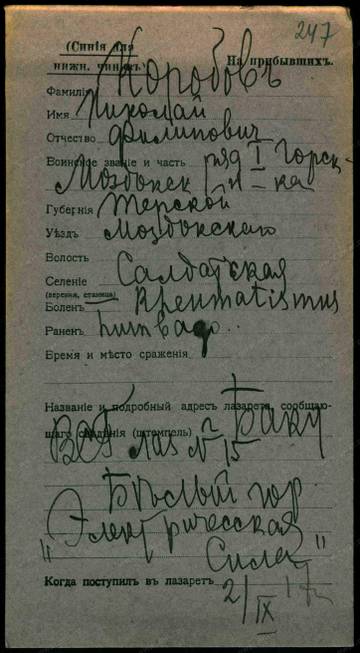 247
(Синія для нижн. чиновъ) На прибывшихъ.
Фамилія Коробовъ
Имя Николай
Отчество Филипович
Воинское званіе и часть ряд I Горск-
Моздокск
Губернія Терской
Уѣздъ Моздокскаго
Волость
Селеніе Салдатская
(деревня, станица)
Боленъ — Rheumatismus
Раненъ lumbago
Время и мѣсто сраженія
Названіе и подробный адресъ лазарета, сообщаю-
щаго свѣдѣнія (штемпель) г Баку
ВСГ Лаз № 15
Бѣлый гор
"Электрическая
Сила"
Когда поступилъ въ лазаретъ 2/IX 17